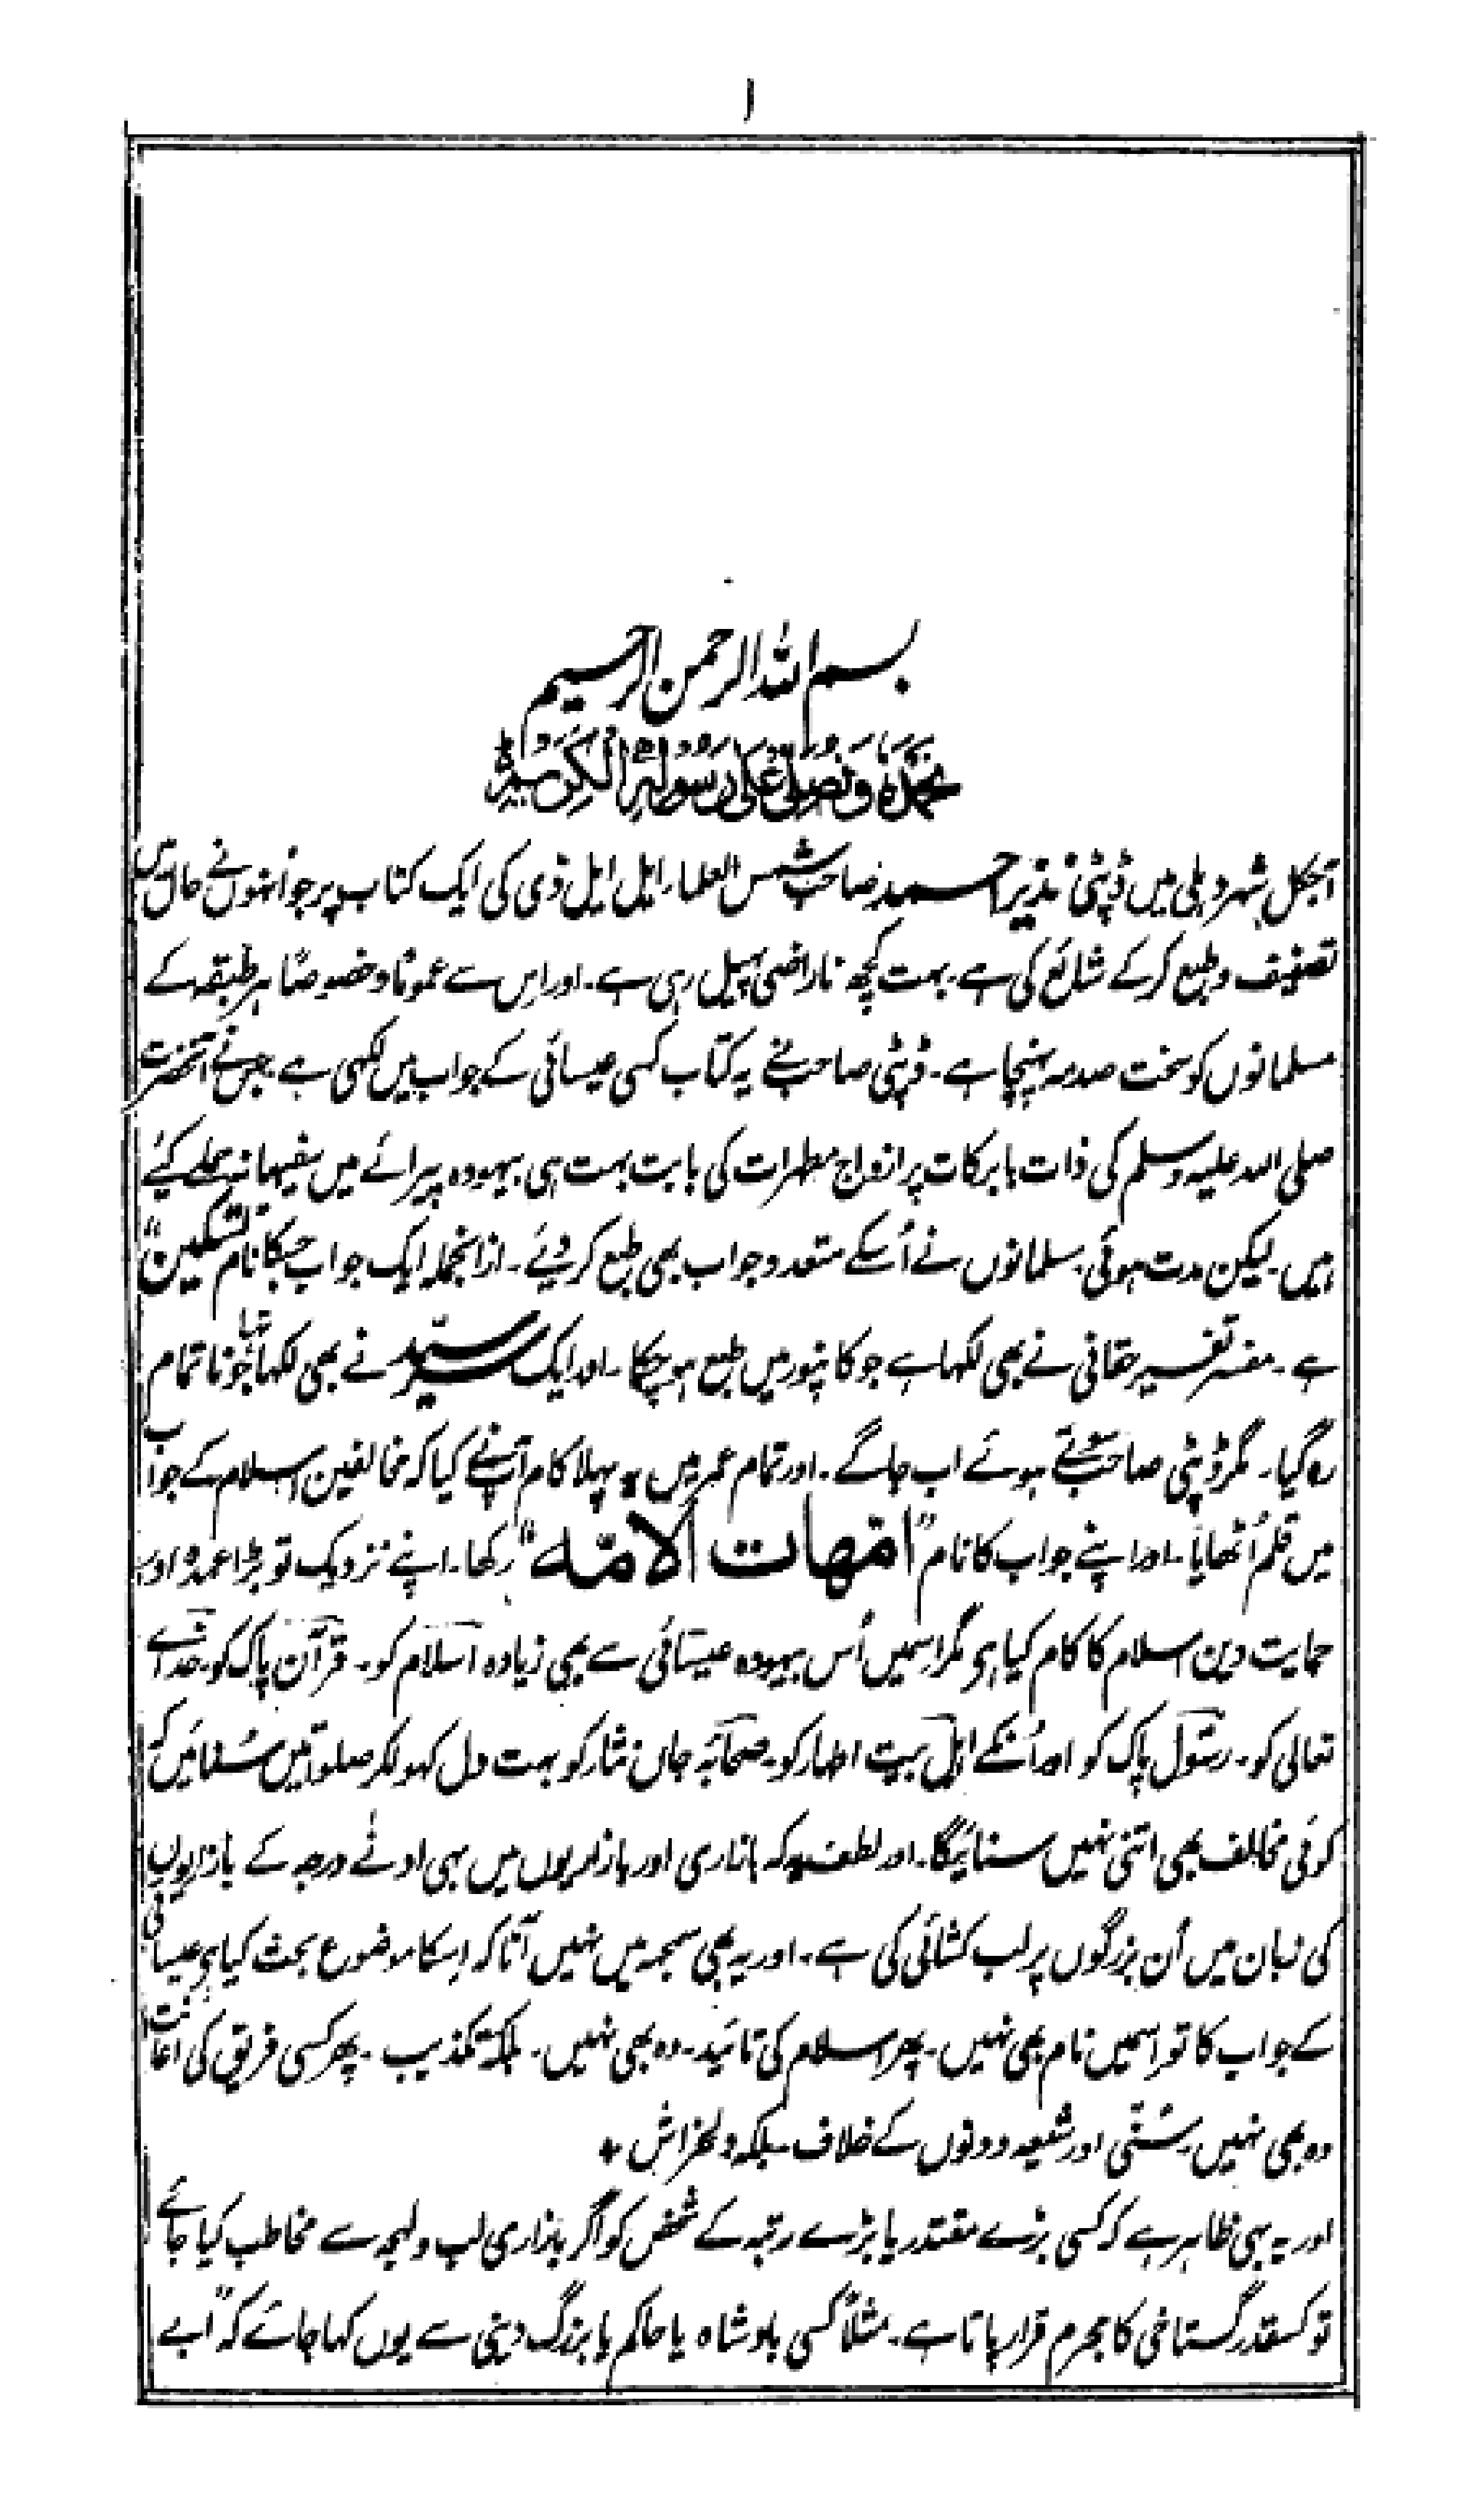 ۱
بسم اللہ الرحمن الرحیم
نحمدہ ونصلی علی رسولہ الکریم
آجکل شہر دہلی میں ڈپٹی نذیر احمد صاحب شمس العلماء ایل ایل ڈی کی ایک کتاب پر جو انہوں نے حال میں
تصنیف و طبع کرکے شائع کی ہے بہت کچھ ناراضی پہیل رہی ہے۔ اور اس سے عموماً و خصوصاً ہر طبقہ کے
مسلمانوں کو سخت صدمہ پہنچا ہے۔ ڈپٹی صاحب نے یہ کتاب کسی عیسائی کے جواب میں لکھی ہے جس نے آنحضرت
صلی اللہ علیہ وسلم کی ذات بابرکات پر ازواج مطہرات کی بابت بہت ہی بیہودہ پیرائے میں سفیہانہ حملے کیئے
ہیں۔ لیکن مدت ہوئی مسلمانوں نے اُسکے متعدد جواب بھی طبع کر دیئے۔ ازانجملہ ایک جواب جسکا نام "تسکین"
ہے۔ مفسر تفسیر حقانی نے بھی لکھا ہے جو کانپور میں طبع ہو چکا۔ اور ایک سرسید نے بھی لکھا تھا جو ناتمام
رہ گیا۔ مگر ڈپٹی صاحب ہوئے اب جاگے۔ اور تمام عمر میں یہ پہلا کام آپنے کیا کہ مخالفین اسلام کے جواب
میں قلم اُٹھایا۔ اور اپنے جواب کا نام "امّهات الامّہ" رکھا۔ اپنے نزدیک تو بڑا عمدہ اور
حمایت دین اسلام کا کام کیا ہی مگر اسمیں اُس بیہودہ عیسائی سے بھی زیادہ اسلام کو۔ قرآن پاک کو۔ خدائے
تعالی کو۔ رسول پاک کو اور اُنکے اہل بیت اطہار کو۔ صحابہ جاں نثار کو بہت دل کہولکر صلواتیں سنائیں کہ
کوئی مخالف بھی اتنی نہیں سنائیگا۔ اور لطف یہ کہ بازاری اور بازاریوں میں بہی ادنےٰ درجہ کے بازاریوں
کی زبان میں اُن بزرگوں پر لب کشائی کی ہے۔ اور یہ بھی سمجہ میں نہیں آتا کہ اسکا موضوع بحث کیا ہی عیسائی
کے جواب کا تو اسمیں نام بھی نہیں۔ پھر اسلام کی تائید۔ وہ بھی نہیں۔ بلکہ تکذیب۔ پھر کسی فریق کی اعانت
وہ بھی نہیں۔ سُنّی اور شیعہ دونوں کے خلاف۔ بلکہ دلخراش +
اور یہ بہی ظاہر ہے کہ کسی بڑے مقتدر یا بڑے رتبہ کے شخص کو اگر بازاری لب و لہجہ سے مخاطب کیا جائے
تو کسقدر گستاخی کا مجرم قرار پاتا ہے۔ مثلاً کسی بادشاہ یا حاکم یا بزرگ دینی سے یوں کہا جائے کہ "ابے